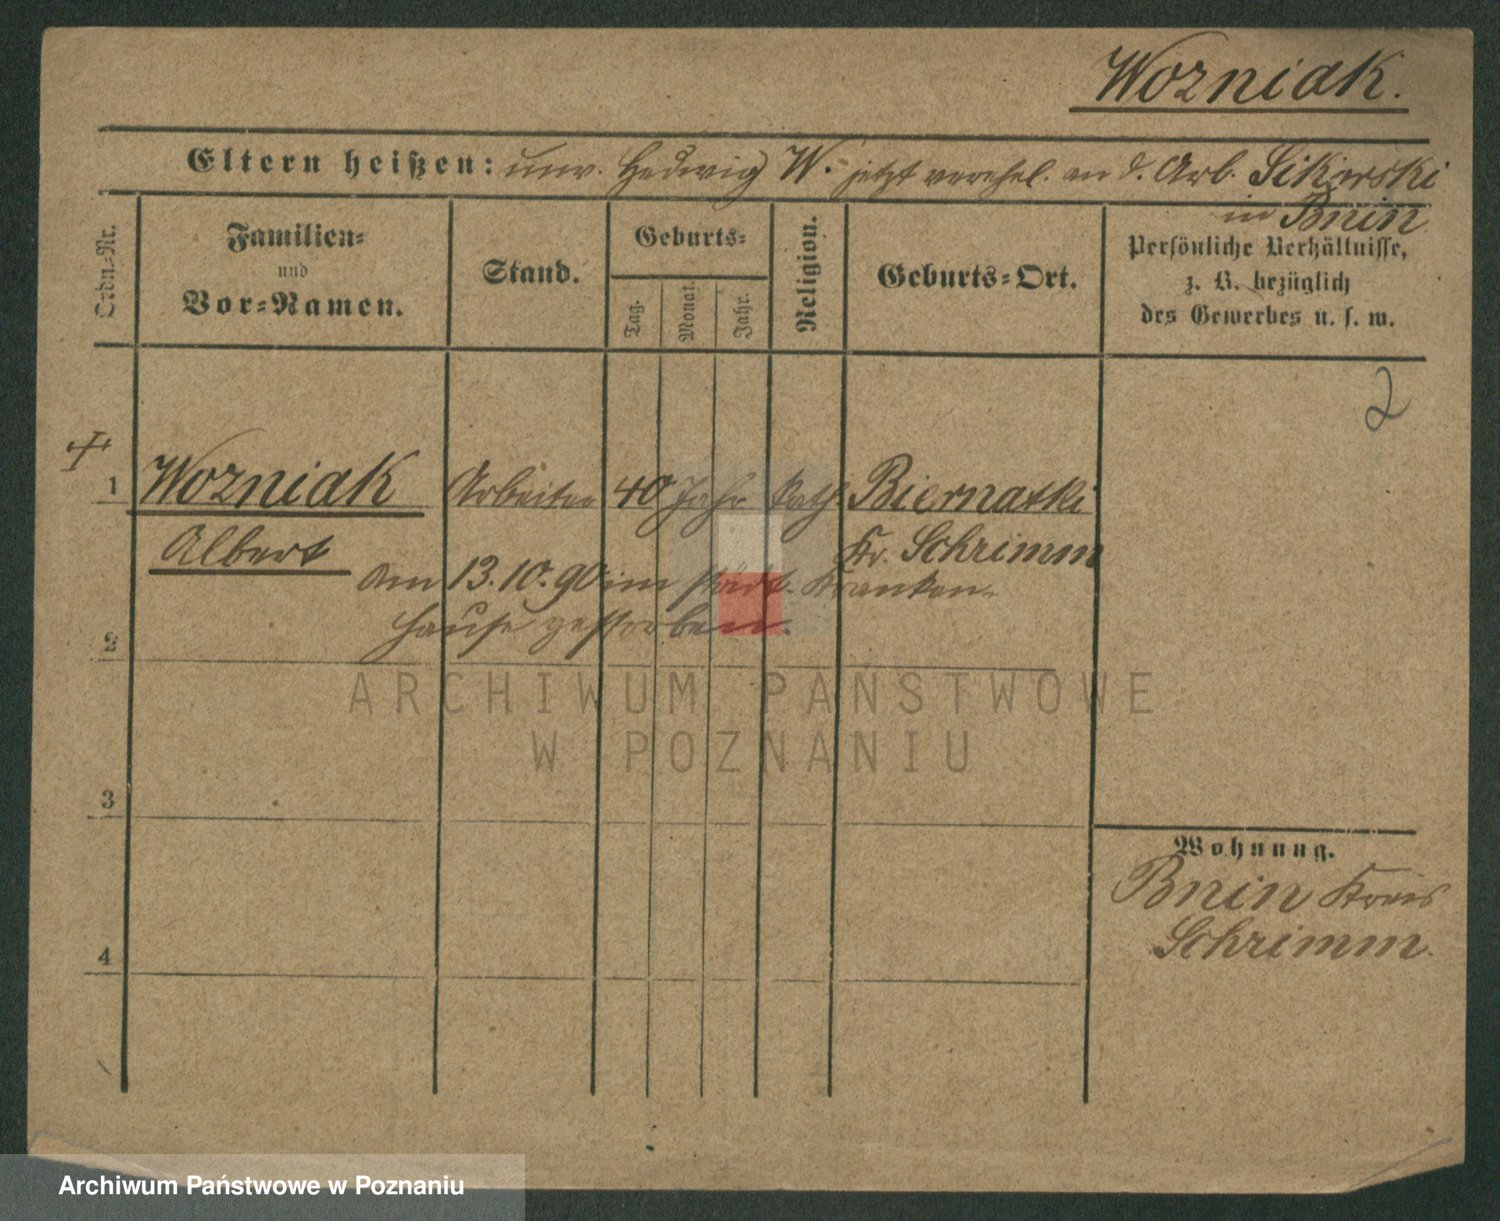 Wozniak.
Eltern heißen: unv. Hedwig W. jetzt verehel. an d. Arb. Sikorski
in Bnin
Ordn.-Nr.
Familien-
und
Vor-Namen.
Stand.
Geburts-
Tag.
Monat.
Jahr.
Religion.
Geburts-Ort.
Persönliche Verhältnisse,
z. B. bezüglich
des Gewerbes u. s. w.
2
1 Wozniak Arbeiter 40 Jahr kath. Biernatki
Albert Kr. Schrimm
Am 13.10.90 im städt. Kranken-
hause gestorben.
2
ARCHIWUM PAŃSTWOWE
W POZNANIU
3
Wohnung.
Bnin Kreis
Schrimm.
4
Archiwum Państwowe w Poznaniu